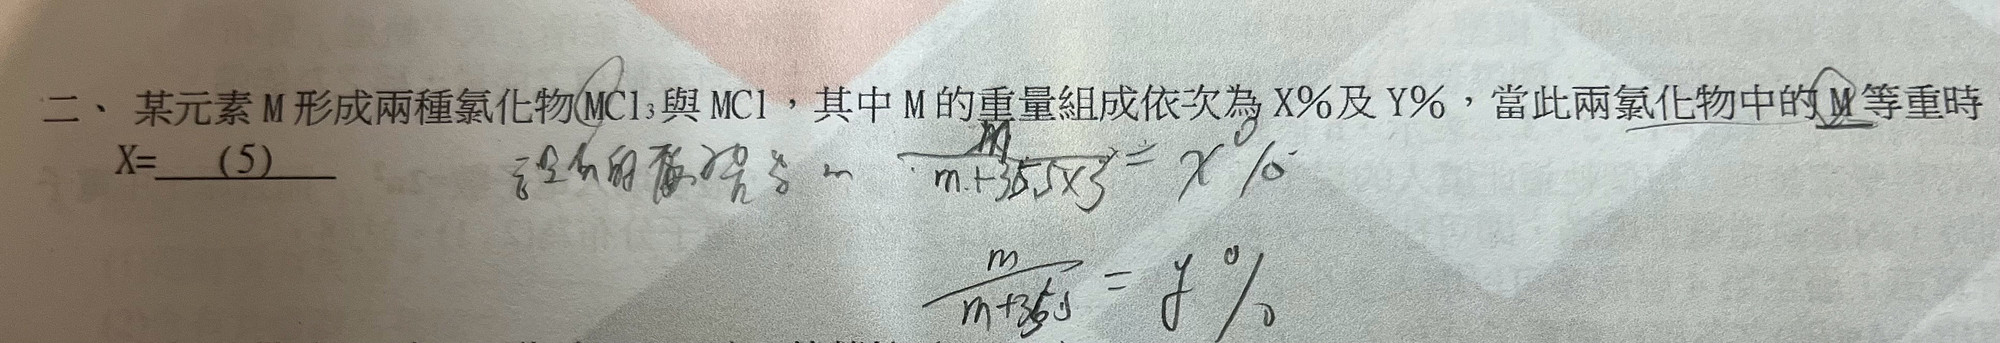 二、某元素 M 形成兩種氯化物 MCl₃與 MCl，其中 M 的重量組成依次為 X%及 Y%，當此兩氯化物中的 M 等重時
X= (5)
m/(m+35.5×3) = x%
m/(m+35.5) = y%